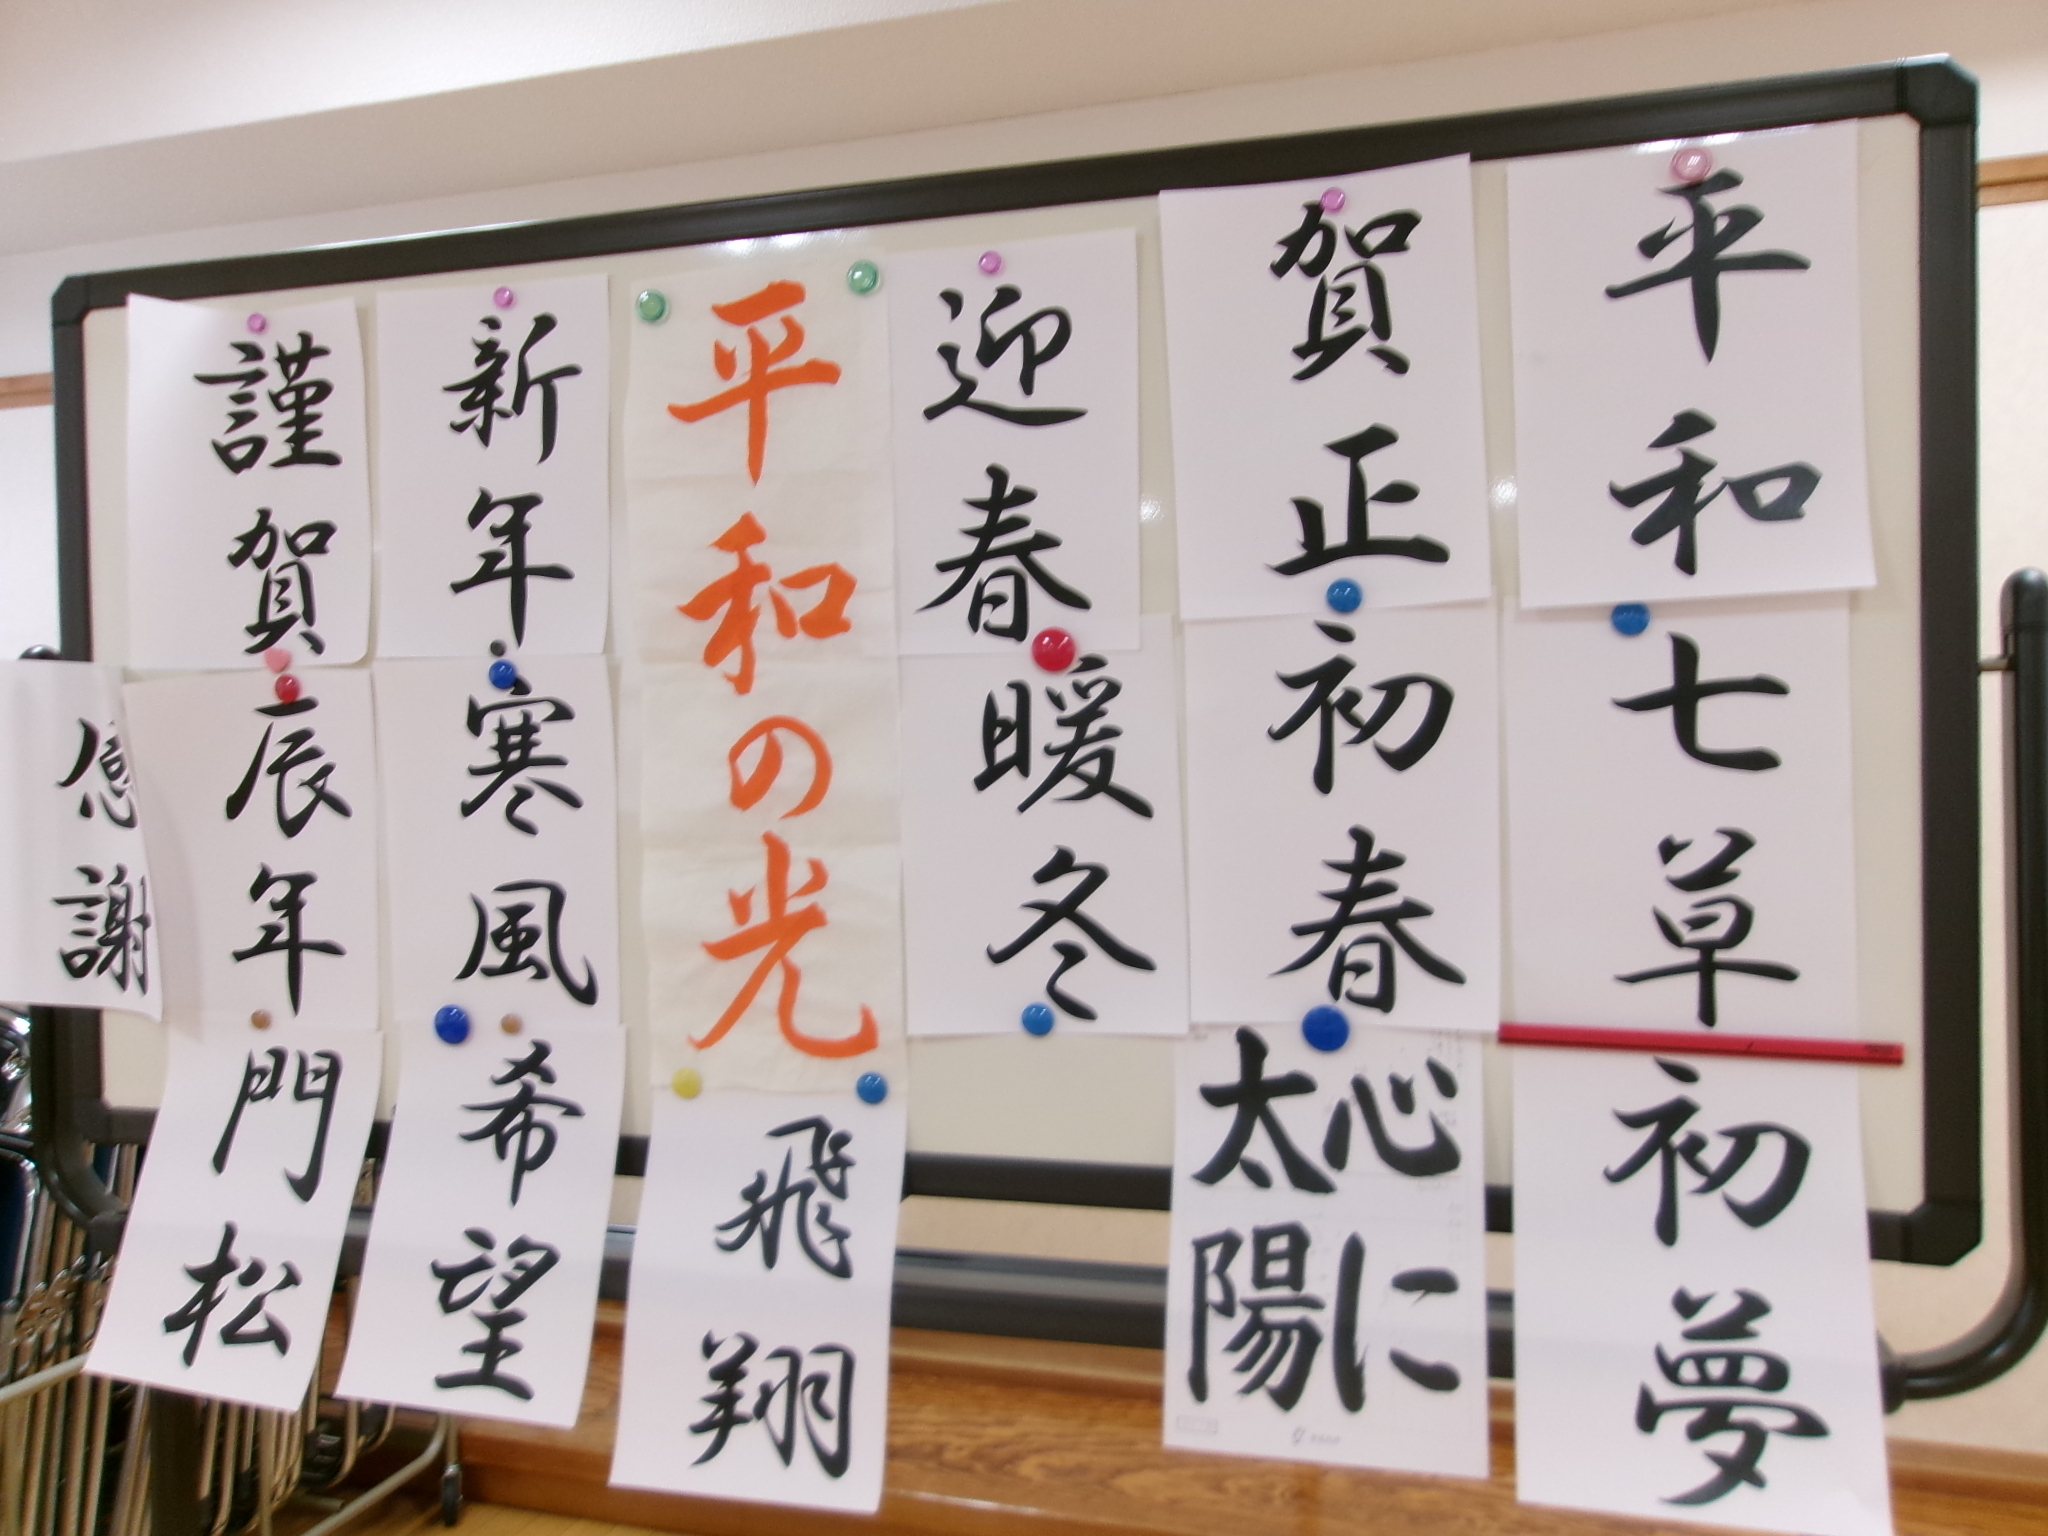 平和
七草
初夢
賀正
初春
心に
太陽
迎春
暖冬
平和の光
飛翔
新年
寒風
希望
謹賀
辰年
門松
感謝